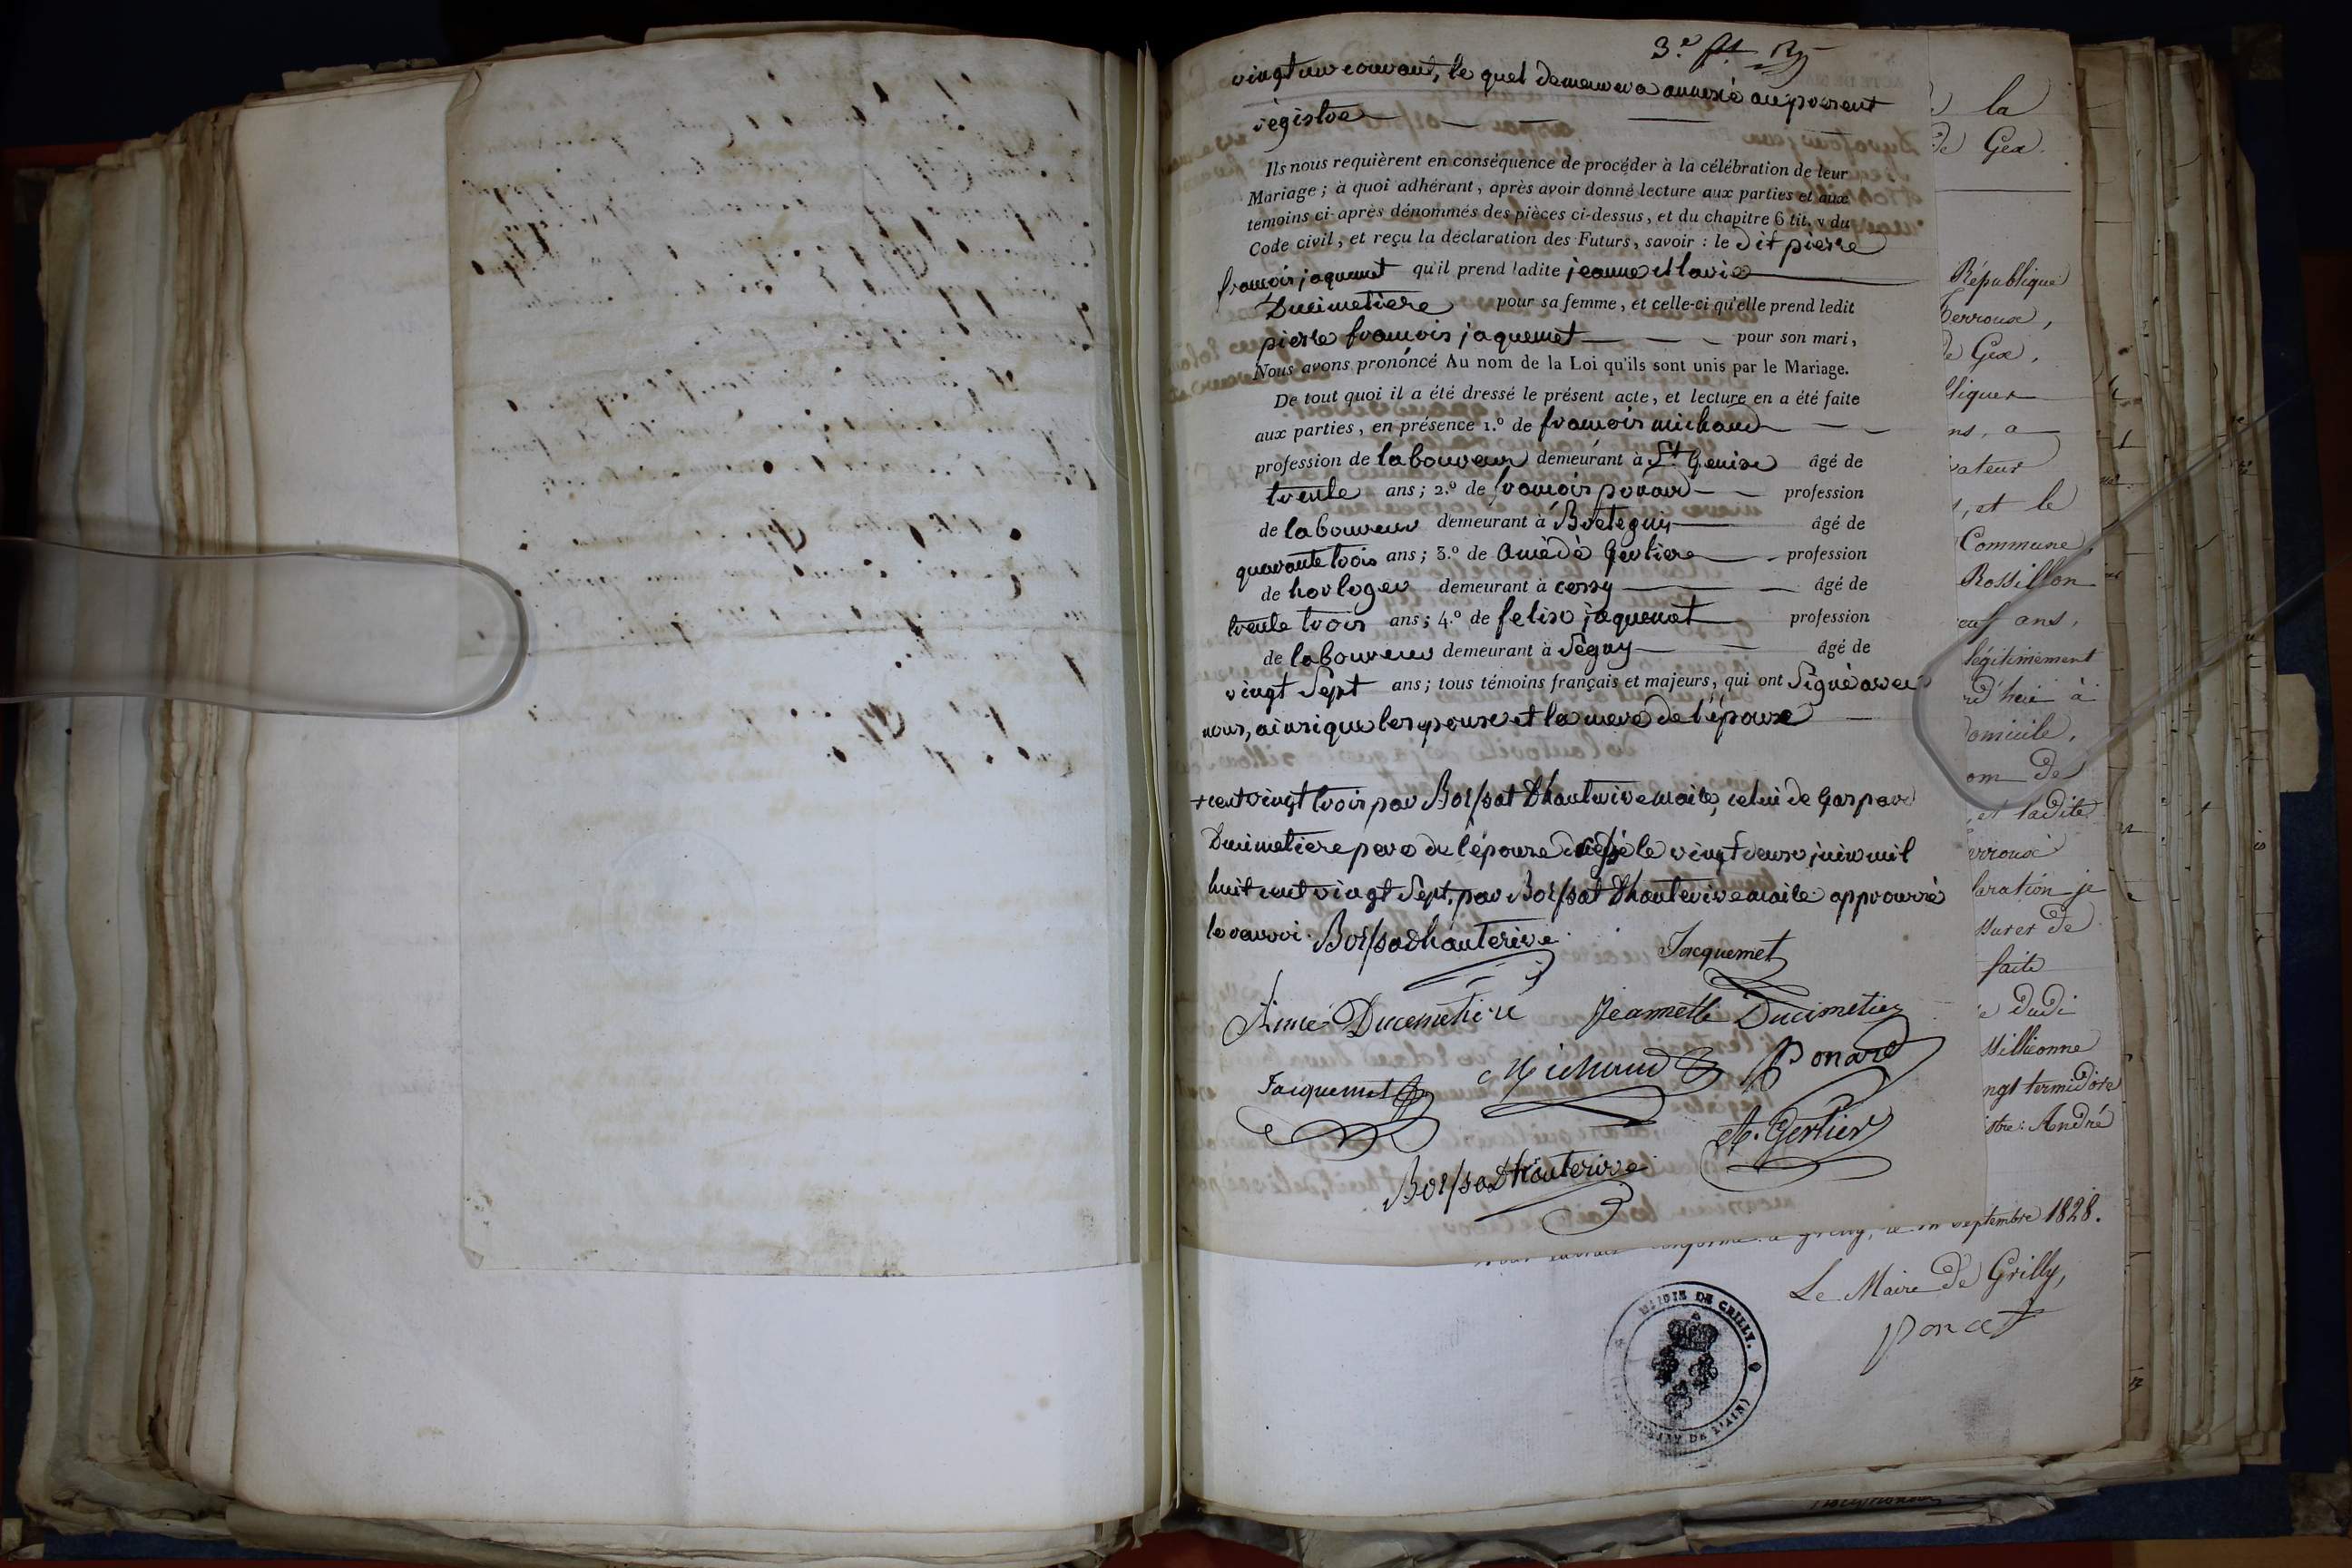 3.e
vingt un courant, le quel demeurera annexé au present
régistre
Ils nous requièrent en conséquence de procéder à la célébration de leur
Mariage ; à quoi adhérant, après avoir donné lecture aux parties et aux
temoins ci-après dénommés des pièces ci-dessus, et du chapitre 6 tit. v du
Code civil, et reçu la déclaration des Futurs, savoir : le dit pierre
francois jaquemet qu'il prend ladite jeanne Marie
Ducimetiere pour sa femme, et celle-ci qu'elle prend ledit
pierre francois jaquemet pour son mari,
Nous avons prononcé Au nom de la Loi qu'ils sont unis par le Mariage.
De tout quoi il a été dressé le présent acte, et lecture en a été faite
aux parties, en présence 1.º de francois michaud
profession de laboureur demeurant à St. Genise âgé de
trente ans ; 2.º de francois ponard profession
de laboureur demeurant à Bretegny âgé de
quarante trois ans ; 3.º de Amédé Gertiere profession
de horloger demeurant à cessy âgé de
trente trois ans ; 4.º de felix jaquemet profession
de laboureur demeurant à Ségny âgé de
vingt Sept ans ; tous témoins français et majeurs, qui ont Signé avec
nous, ainsi que les epoux et la mere de l'épouse
+ cent vingt trois par Boissat Dhauterive maire, celui de Gaspard
Ducimetiere pere de l'épouse décédé le vingt deux juin mil
huit cent vingt Sept, par Boissat Dhauterive maire approuvé
le renvoi. Boissadhauterive
Jacquemet
Aimé Ducemetiere Jeannette Ducimetier
Jacquemet Michaud Ponard
A. Gertier
BoissadHauterive
la
de Gex.
République
erroux,
de Gex,
liquer
ns, a
vateur
s, et le
Commune,
Rossillon
euf ans,
légitimement
rd'hui à
domicile,
om de
, et ladite
erroux
laration je
surer de
faite
e dudi
sillionne
ngt termidore
istre : André
septembre 1828.
Le Maire de Grilly,
Poncet
MAIRIE DE GRILLY.